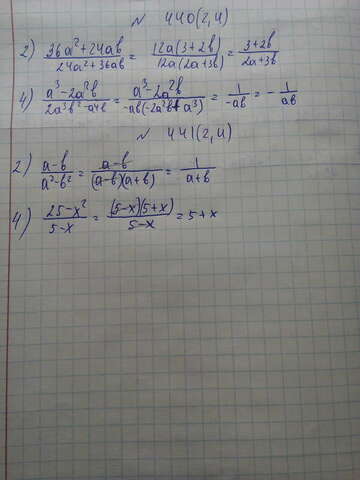 № 440(2,4)
2) (36a²+24ab)/(24a²+36ab) = (12a(3+2b))/(12a(2a+3b)) = (3+2b)/(2a+3b)
4) (a³-2a²b)/(2a³b²-a4b) = (a³-2a²b)/(-ab(-2a²b+a³)) = 1/(-ab) = - 1/(ab)
№ 441(2,4)
2) (a-b)/(a²-b²) = (a-b)/((a-b)(a+b)) = 1/(a+b)
4) (25-x²)/(5-x) = ((5-x)(5+x))/(5-x) = 5+x